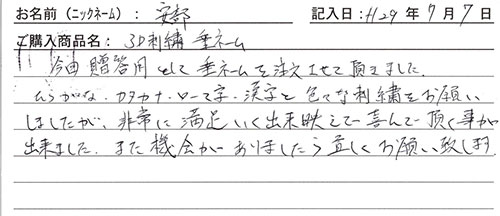 お名前(ニックネーム): 安部 記入日:H29年7月7日
ご購入商品名: 3D刺繍 垂ネーム
今回 贈答用として垂ネームを注文させて頂きました.
ひらがな・カタカナ・ローマ字・漢字と色々な刺繍をお願い
しましたが、非常に満足いく出来映えで喜んで頂く事が
出来ました. また機会がありましたら宜しくお願い致します